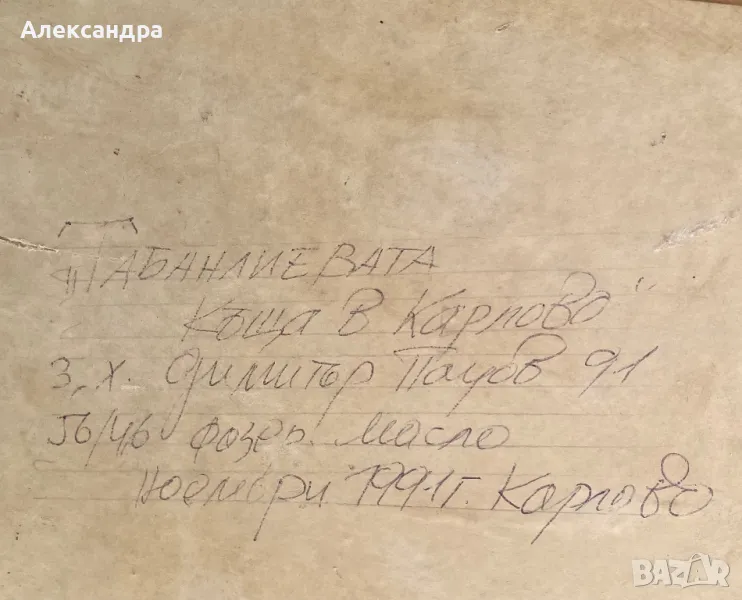 Александра
„ТАБАНЛИЕВАТА
Къща в Карлово“
З.х. Димитър Пауов 91
56/46 фазер масло
Ноември 1991г. Карлово
BAZAR